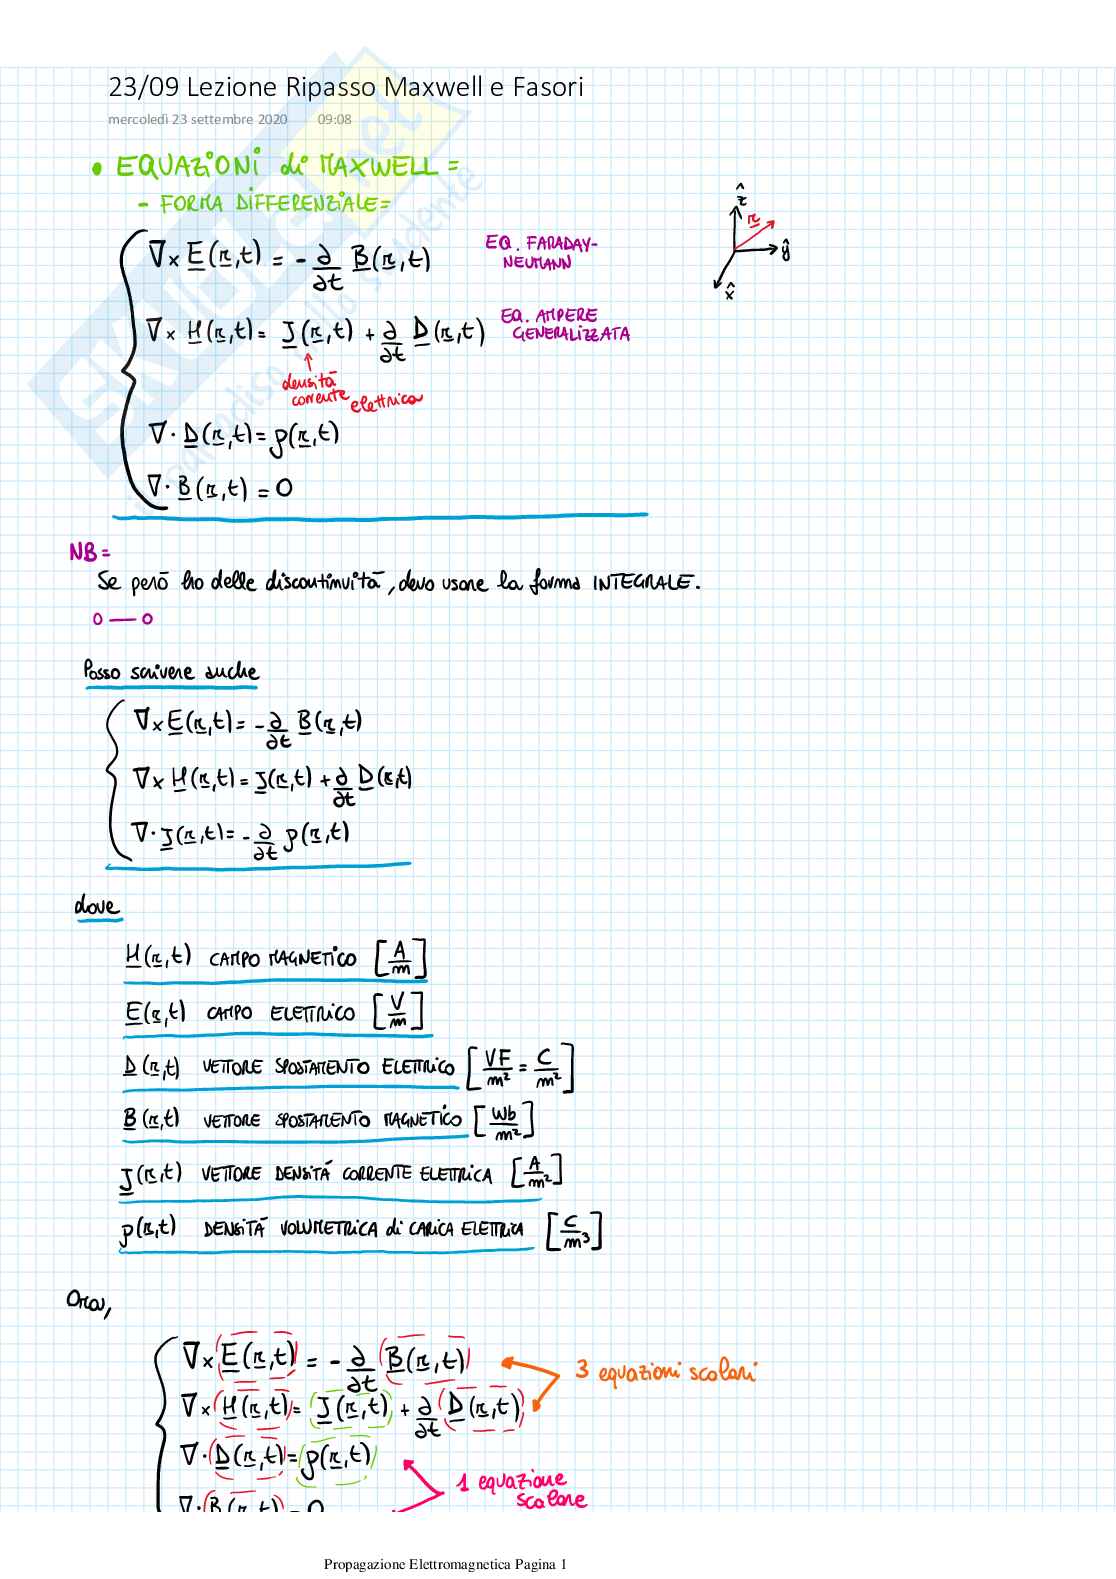 23/09 Lezione Ripasso Maxwell e Fasori
mercoledì 23 settembre 2020 09:08
• EQUAZIONI di MAXWELL =
- FORMA DIFFERENZIALE =
∇×E(r,t) = -∂/∂t B(r,t) EQ. FARADAY-NEUMANN
∇×H(r,t) = J(r,t) + ∂/∂t D(r,t) EQ. AMPERE GENERALIZZATA
↑
densità
corrente elettrica
∇·D(r,t) = ρ(r,t)
∇·B(r,t) = 0
ẑ
r
ŷ
x̂
NB =
Se però ho delle discontinuità, devo usare la forma INTEGRALE.
o — o
Posso scrivere anche
∇×E(r,t) = -∂/∂t B(r,t)
∇×H(r,t) = J(r,t) + ∂/∂t D(r,t)
∇·J(r,t) = -∂/∂t ρ(r,t)
dove
H(r,t) CAMPO MAGNETICO [A/m]
E(r,t) CAMPO ELETTRICO [V/m]
D(r,t) VETTORE SPOSTAMENTO ELETTRICO [VF/m² = C/m²]
B(r,t) VETTORE SPOSTAMENTO MAGNETICO [Wb/m²]
J(r,t) VETTORE DENSITÀ CORRENTE ELETTRICA [A/m²]
ρ(r,t) DENSITÀ VOLUMETRICA di CARICA ELETTRICA [C/m³]
Ora,
∇×E(r,t) = -∂/∂t B(r,t)
3 equazioni scalari
∇×H(r,t) = J(r,t) + ∂/∂t D(r,t)
∇·D(r,t) = ρ(r,t)
1 equazione
scalare
∇·B(r,t) = 0
Propagazione Elettromagnetica Pagina 1